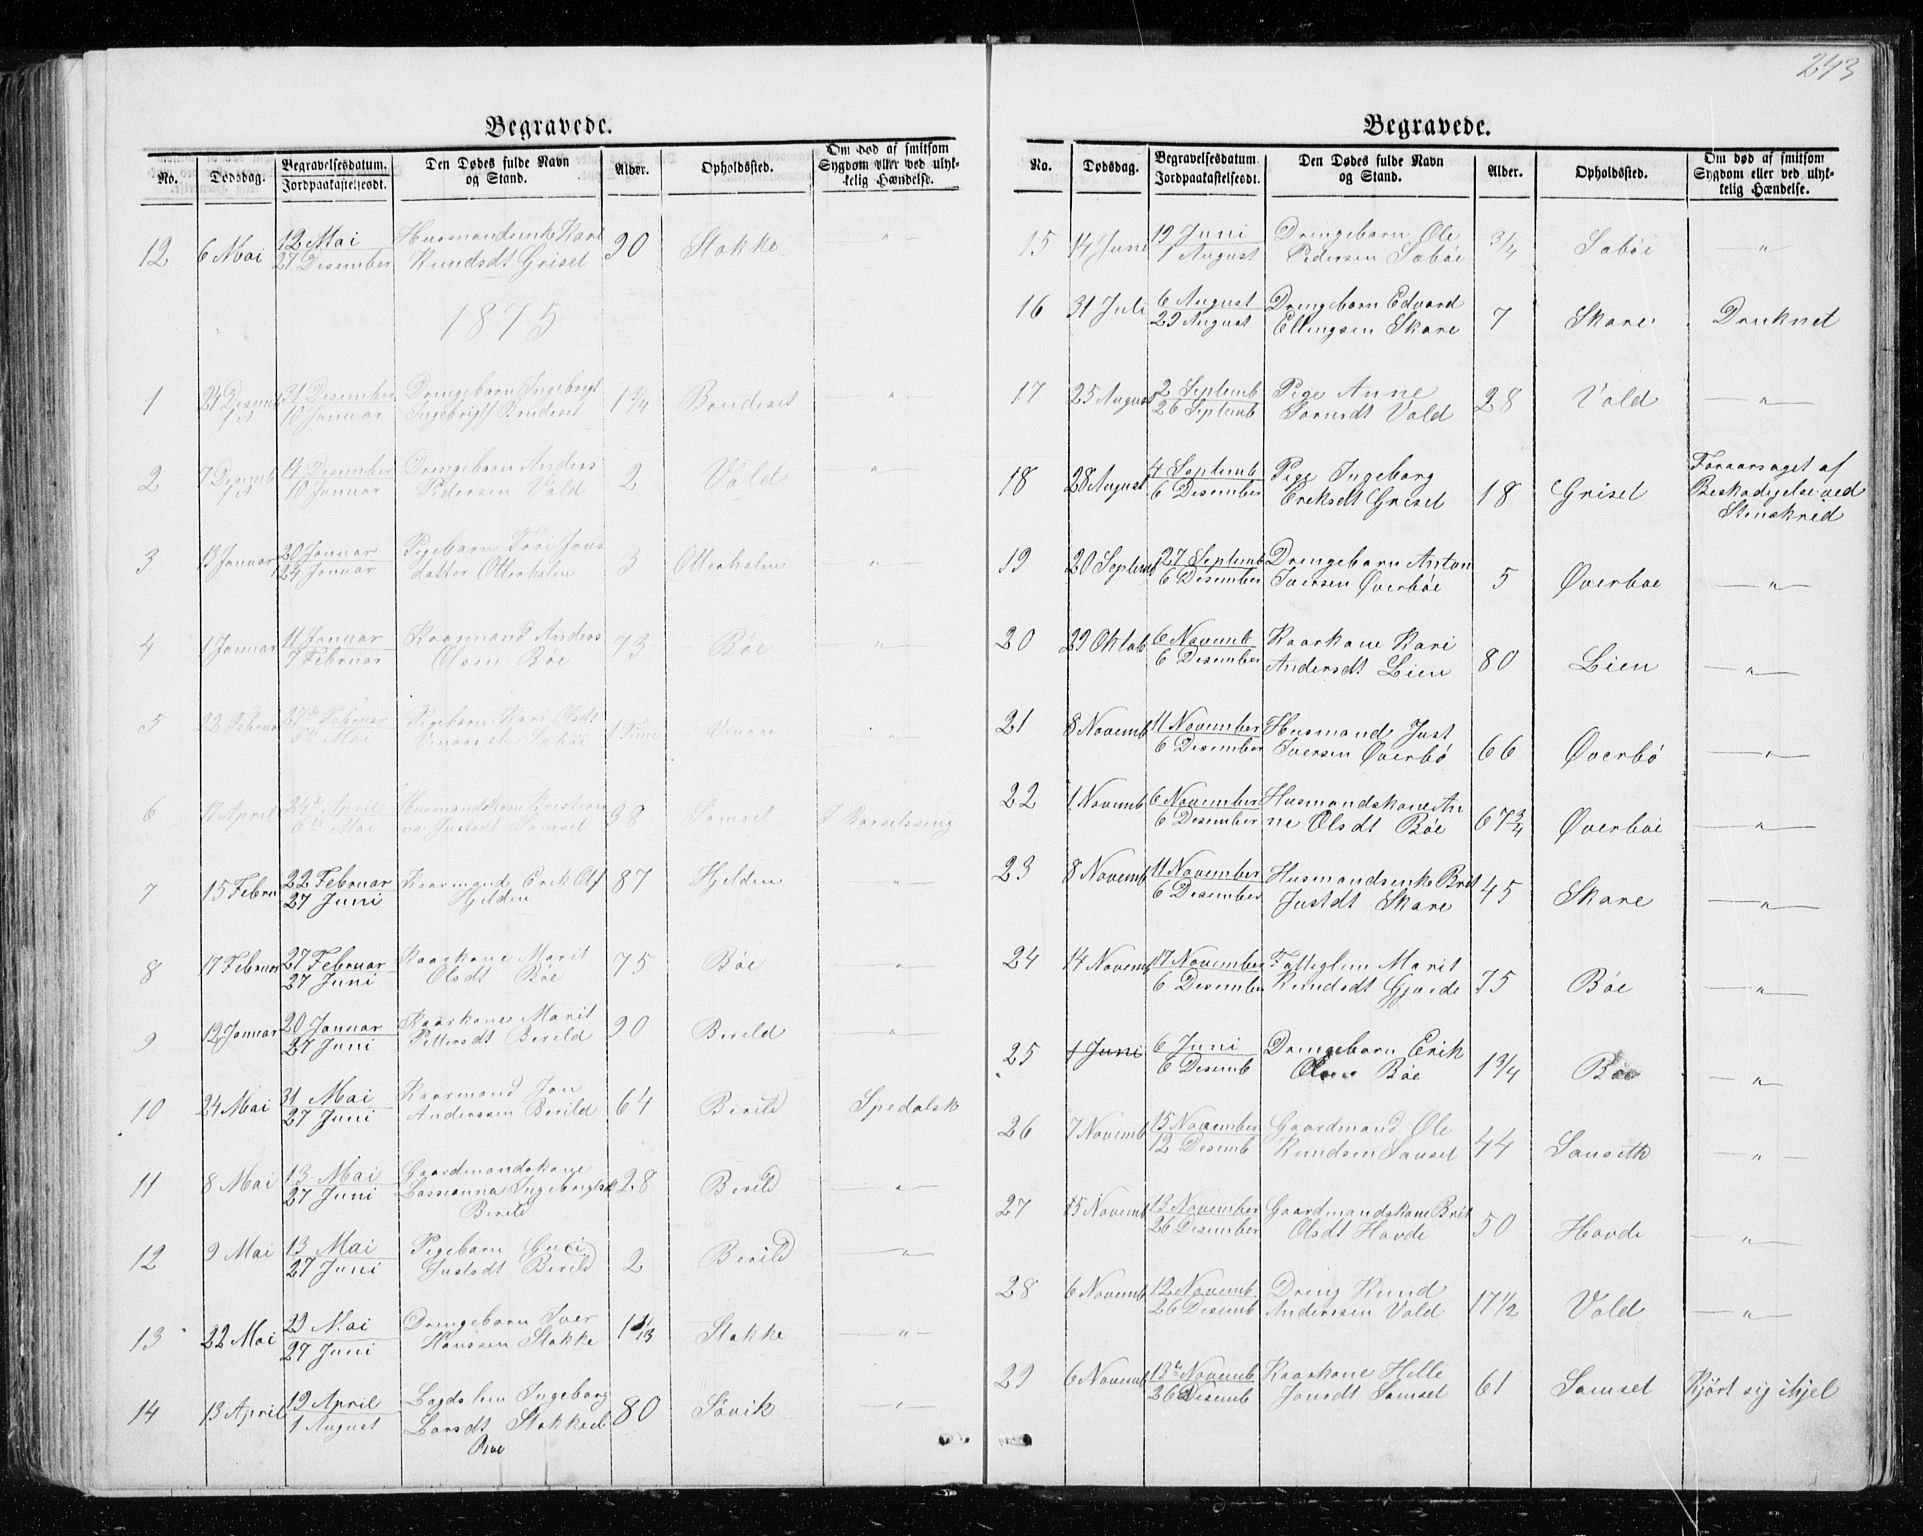 243
Begravede.
No. Dødsdag. Begravelsesdatum. Jordpaakastelsesdt. Den Dødes fulde Navn og Stand. Alder. Opholdssted. Om død af smitsom Sygdom eller ved ulykkelig Hændelse.
12 6 Mai 12 Mai Husmandsenke Kari 90 Stokke -"-
27 Desember Knudsdt Griset
1875
1 24 Desemb 31 Desember Drengebarn Ingebrigt 1 3/4 Brudeset -"-
f.A 10 Januar Ingebrigtf Brudeset
2 7 Desemb 14 Desember Drengebarn Anders 2 Vold -"-
f.A 10 Januar Pedersen Vold
3 13 Januar 20 Januar Pigebarn Jons 3 Otterholm -"-
24 Januar datter Otterholm
4 1 Januar 11 Januar Kaarmand Anders 73 Bøe -"-
7 Februar Olsen Bøe
5 22 Februar 27de Februar Pigebarn Kari Olsdt 1 Time -"-
6te Mai
6 17 April 24de April Husmandskone Kristian 39 Samset Barselsseng
6te Mai na Justsdt Samset
7 15 Febru 22 Februar Kaarmand Erik Ols 87 Hjelden -"-
27 Juni Hjelden
8 17 Februar 27 Februar Kaarkone Marit 75 Bøe -"-
27 Juni Olsdt Bøe
9 12 Januar 20 Januar Kaarkone Marit 90 Berild -"-
27 Juni Pettersdt Berild
10 24 Mai 31 Mai Kaarmand Jon 64 Berild Spedalsk
27 Juni Anderssen Berild
11 8 Mai 13 Mai Gaardmandskone 28 Berild -"-
27 Juni Ingebrigtsdt
Berild
12 9 Mai 13 Mai Pigebarn Guri 2 Berild -"-
27 Juni Justsdt Berild
13 22 Mai 29 Mai Drengebarn Iver Stokke -"-
27 Juni Hanssen Stokke
14 13 April 19 April Ingeborg 80 Søvik -"-
1 August Larsdt
Begravede.
No. Dødsdag. Begravelsesdatum Jordpaakastelsesdt. Den Dødes fulde Navn og Stand. Alder. Opholdssted. Om død af smitsom Sygdom eller ved ulykkelig Hændelse.
15 14 Juni 19 Juni Drengebarn Ole 3/4 Søbøe -"-
1 August Pedersen Søbøe
16 31 Juli 6 August Drengebarn Edvard 7 Skare Druknet
29 August Ellingsen Skare
17 25 August 2 Septemb Pige Anne 28 Vold -"-
26 Septemb Vold
18 28 August 4 Septemb Pige Ingeborg 18 Griset Foraarsaget af
6 Desember Eriksdt Griset Beskadigelse ved
Stenskred
19 20 Septemb 27 Septemb Drengebarn Anton 5 Øverbøe -"-
6 Desember Iversen Øverbøe
20 29 Oktob 6 Novemb Kaarkone Kari 80 Lien -"-
6 Desember Andersdt Lien
21 8 Novemb 11 November Husmand Just 66 Øverbø -"-
6 Desember Iversen Øverbø
22 1 Novemb 6 November Husmandskone An 67 3/4 Øverbøe -"-
6 Desember ne Olsdt Bøe
23 8 Novemb 11 November Husmandsenke Brit 45 Skare -"-
6 Desember Justdt Skare
24 14 Novemb 17 November Fattiglem Marit 75 Bøe -"-
6 Desember Knudsdt Gjerde
25 1 Juni 6 Juni Drengebarn Erik 1 3/4 Bøe -"-
6 Desemb Olsen Bøe
26 7 Novemb 15 November Gaardmand Ole 44 Samseth -"-
12 Desemb Knudsen Samset
27 15 Novemb 13 November Gaardmandskone Brit 50 Hovde -"-
26 Desember Olsdt Hovde
28 6 Novemb 12 Novemb Dreng Knud 17 1/2 Vold -"-
26 Desemb Anderssen Vold
29 6 Novemb 13de Novemb Kaarkone Helle 61 Samset Kjørt sig ihjel
26 Desemb Jonsdt Samset